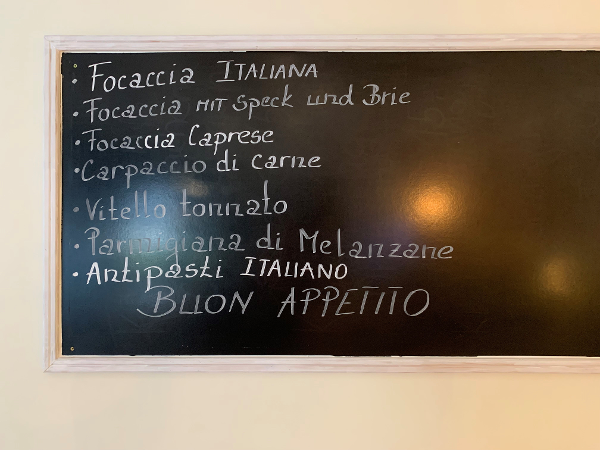 • Focaccia ITALIANA
• Focaccia MIT Speck und Brie
• Focaccia Caprese
• Carpaccio di carne
• Vitello tonnato
• Parmigiana di Melanzane
• Antipasti ITALIANO
BUON APPETITO